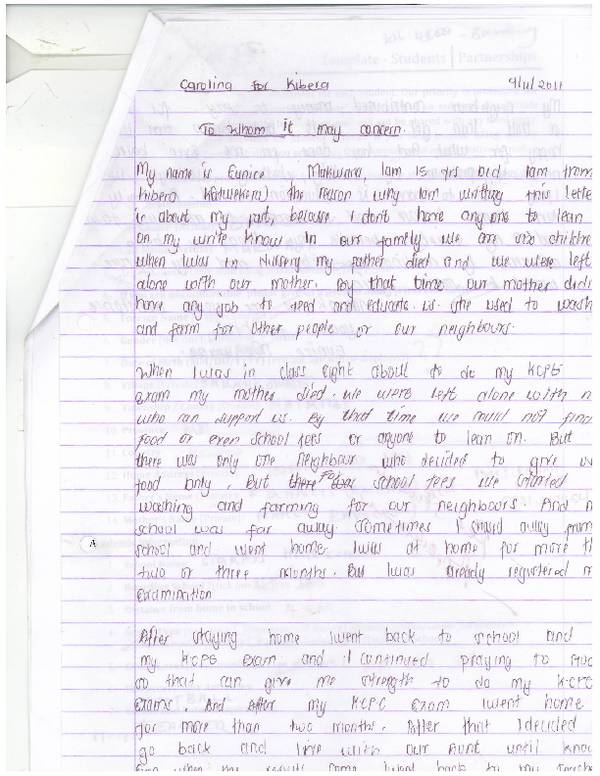 Carolina for Kibera 9/11/2011
To whom it may concern.
My name is Eunice Makwara, Iam 15 yrs old Iam from
Kibera Katwekera) the reason why Iam writting this lette
is about my past, because I don't have any one to lean
on my write know In our family we are six childre
when I was in Nursery my father died and we were left
alone with our mother. By that time our mother didn
have any job to feed and educate us. she used to wash
and farm for other people or our neighbours.
When I was in class eight about to do my KCPE
exam my mother died. we were left alone with n
who can support us. By that time we could not find
food or even school fees or anyone to lean on. But
there was only one neighbour who decided to give us
food only. But there for was school fees we started
washing and farming for our neighbours. And m
school was far away. Sometimes I chased away from
school and went home I was at home for more th
two or three months. But I was already registered m
Examination
After staying home I went back to school and
my KCPE exam and I continued praying to
so that, can give me strength to do my KCPE
Exams. And After my KCPE exam I went home
for more than two months. After that I decided
go back and live with our Aunt until know